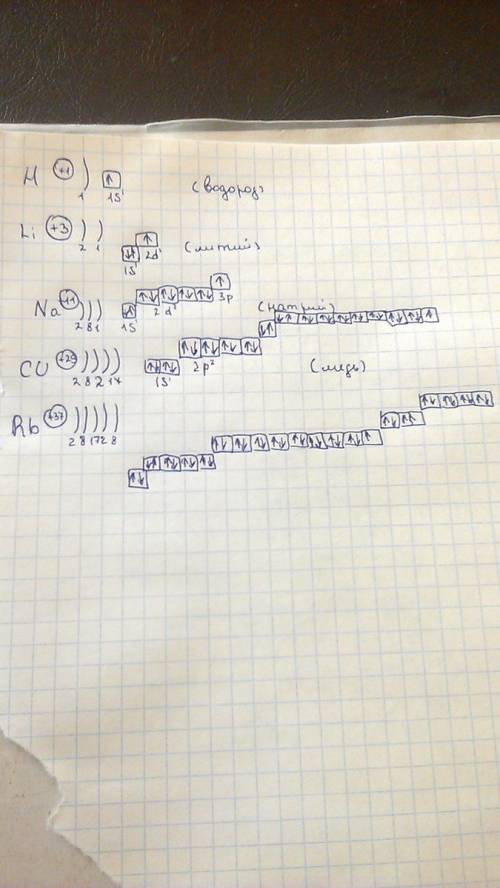 H +1 ) ↑ (водород)
1 1S¹
Li +3 ) ) ↑↓ ↑ (литий)
2 1 1S¹ 2d¹
Na +11 ) ) ) (натрий)
2 8 1 1S¹ 2d¹ 3p
CU +29 ) ) ) ) (медь)
2 8 2 17 1S¹ 2p²
Rb +37 ) ) ) ) )
2 8 17 2 8